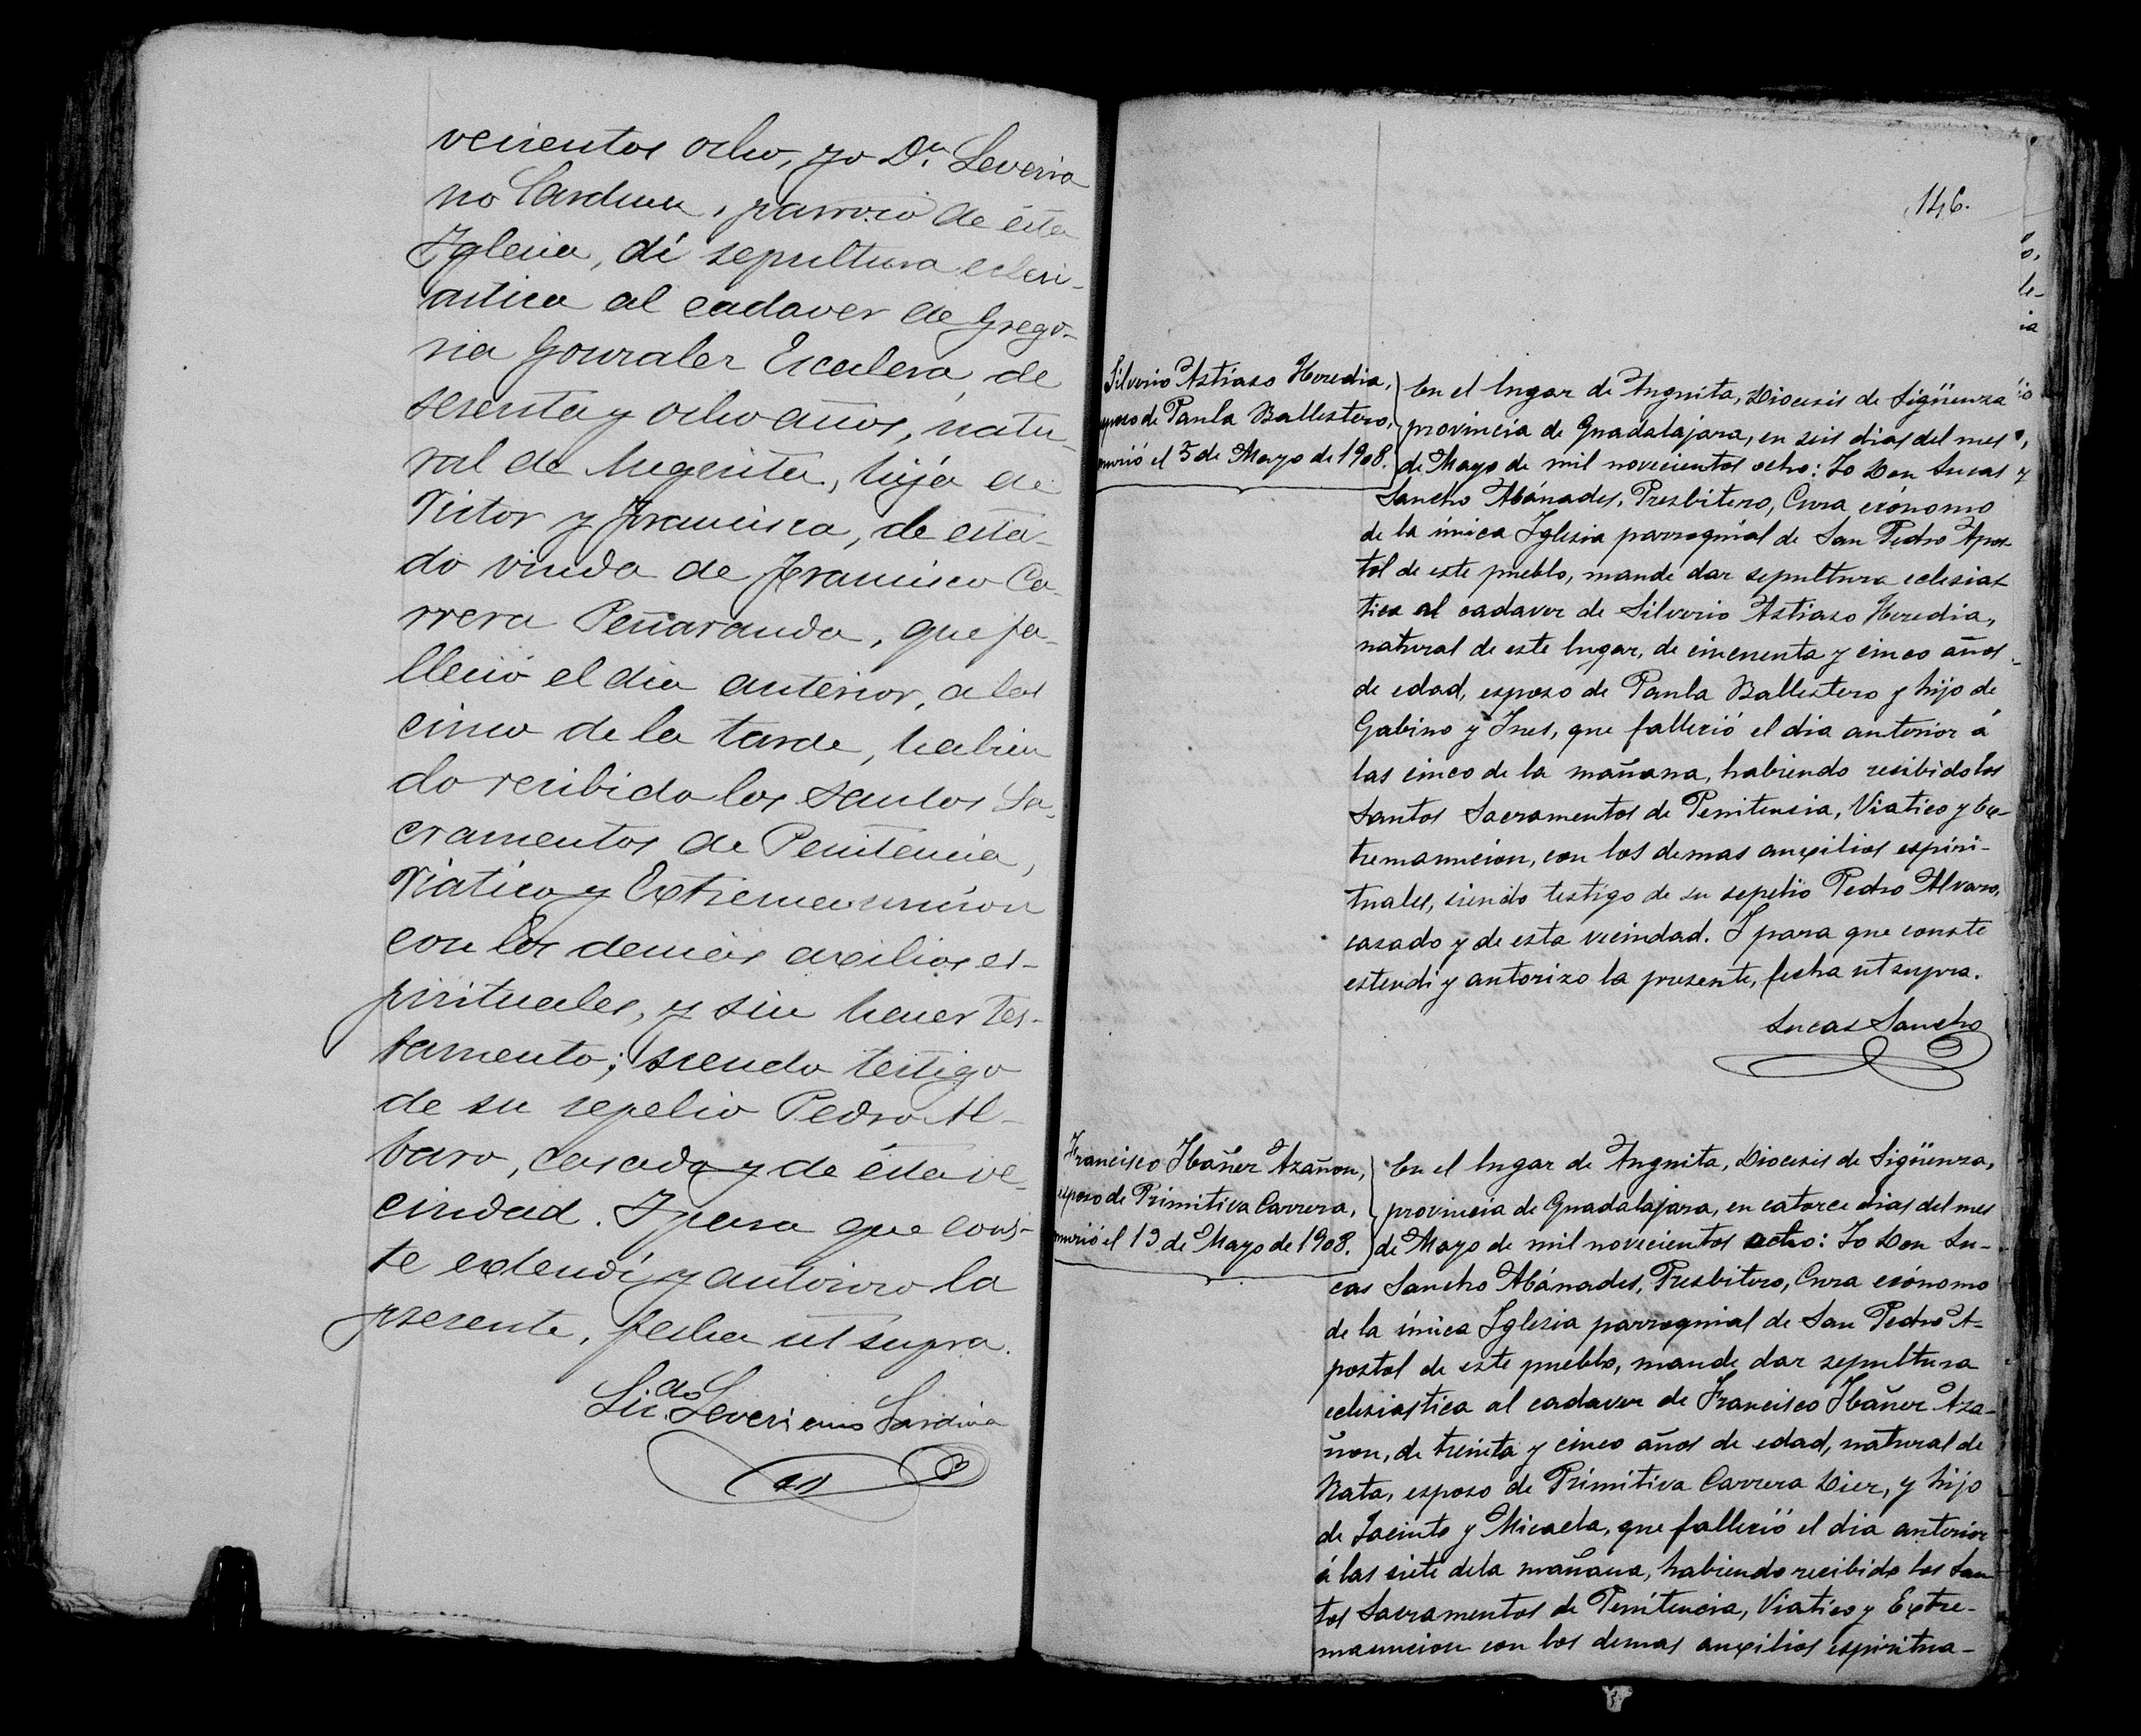 vecientos ocho, yo Dn. Severia
no Sardina, párroco de ésta
Iglesia, dí sepultura eclesi-
ástica al cadaver de Grego-
ria Gonzalez Escalera de
sesenta y ocho años, natu-
ral de Anguita, hija de
Victor y Francisca, de esta-
do viuda de Francisco Ca-
rrera Peñaranda, que fa-
lleció el dia anterior, a las
cinco de la tarde, habien
do recibido los Santos Sa-
cramentos de Penitencia,
Viático y Extremaunción
con los demás auxilios es-
pirituales, y sin hacer tes-
tamento; siendo testigo
de su sepelio Pedro Al-
varo, casado y de ésta ve-
cindad. Y para que cons-
te extendí y autorizo la
presente, fecha ut supra.
Licdo. Severiano Sardina
146.
Silverio Astiaso Heredia,
esposo de Paula Ballestero,
murió el 5 de Mayo de 1908.
En el lugar de Anguita, Diocesis de Sigüenza
provincia de Guadalajara, en seis dias del mes
de Mayo de mil novecientos ocho: Yo Don Lucas
Sancho Abánades, Presbitero, Cura ecónomo
de la única Iglesia parroquial de San Pedro Apos-
tol de este pueblo, mande dar sepultura eclesias
tica al cadaver de Silverio Astiaso Heredia,
natural de este lugar, de cincuenta y cinco años
de edad, esposo de Paula Ballestero y hijo de
Gabino y Ines, que falleció el dia anterior á
las cinco de la mañana, habiendo recibido los
Santos Sacramentos de Penitencia, Viatico y Ex-
tremauncion, con los demas auxilios espiri-
tuales, siendo testigo de su sepelio Pedro Alvaro,
casado y de esta vecindad. Y para que conste
estendi y autorizo la presente, fecha ut supra.
Lucas Sancho
Francisco Ibañer Azañon,
esposo de Primitiva Carrera,
murió el 13 de Mayo de 1908.
En el lugar de Anguita, Diocesis de Sigüenza,
provincia de Guadalajara, en catorce dias del mes
de Mayo de mil novecientos ocho: Yo Don Lu-
cas Sancho Abánades, Presbitero, Cura ecónomo
de la única Iglesia parroquial de San Pedro A-
postol de este pueblo, mande dar sepultura
eclesiastica al cadaver de Francisco Ibañer Aza-
ñon, de treinta y cinco años de edad, natural de
Rata, esposo de Primitiva Carrera Dier, y hijo
de Jacinto y Micaela, que falleció el dia anterior
á las siete dela mañana, habiendo recibido los San
tos Sacramentos de Penitencia, Viatico y Extre-
mauncion con los demas auxilios espiritua-